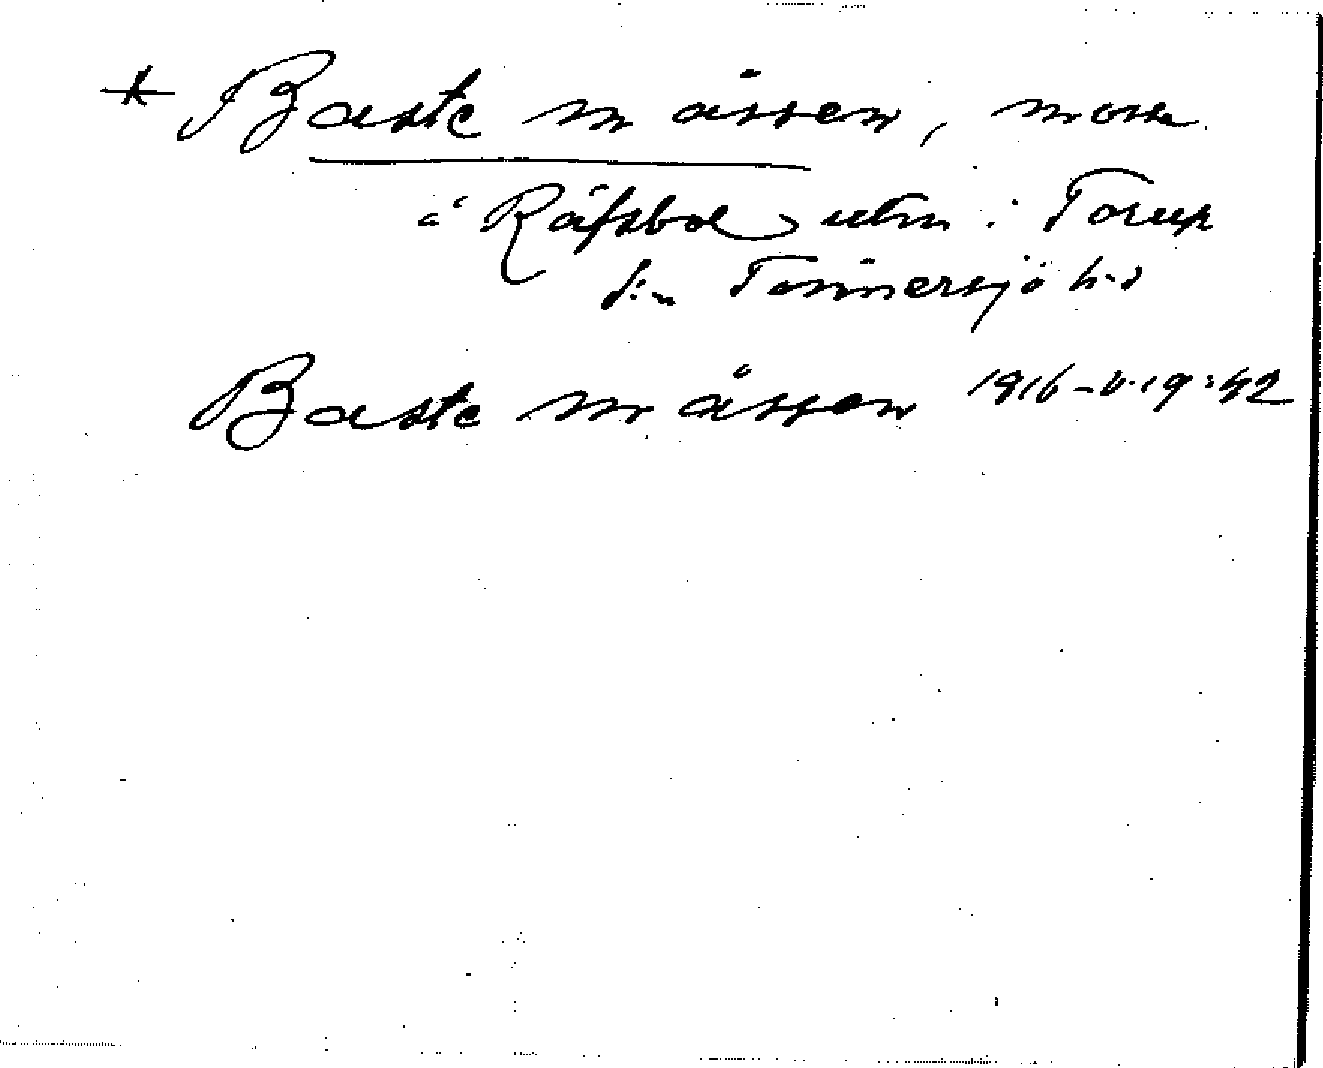 * Baste måssen, mosse
å Räfsbol utm i Torup
s:n Tönnersjö h:d
Baste måssen 1916-6.19:42